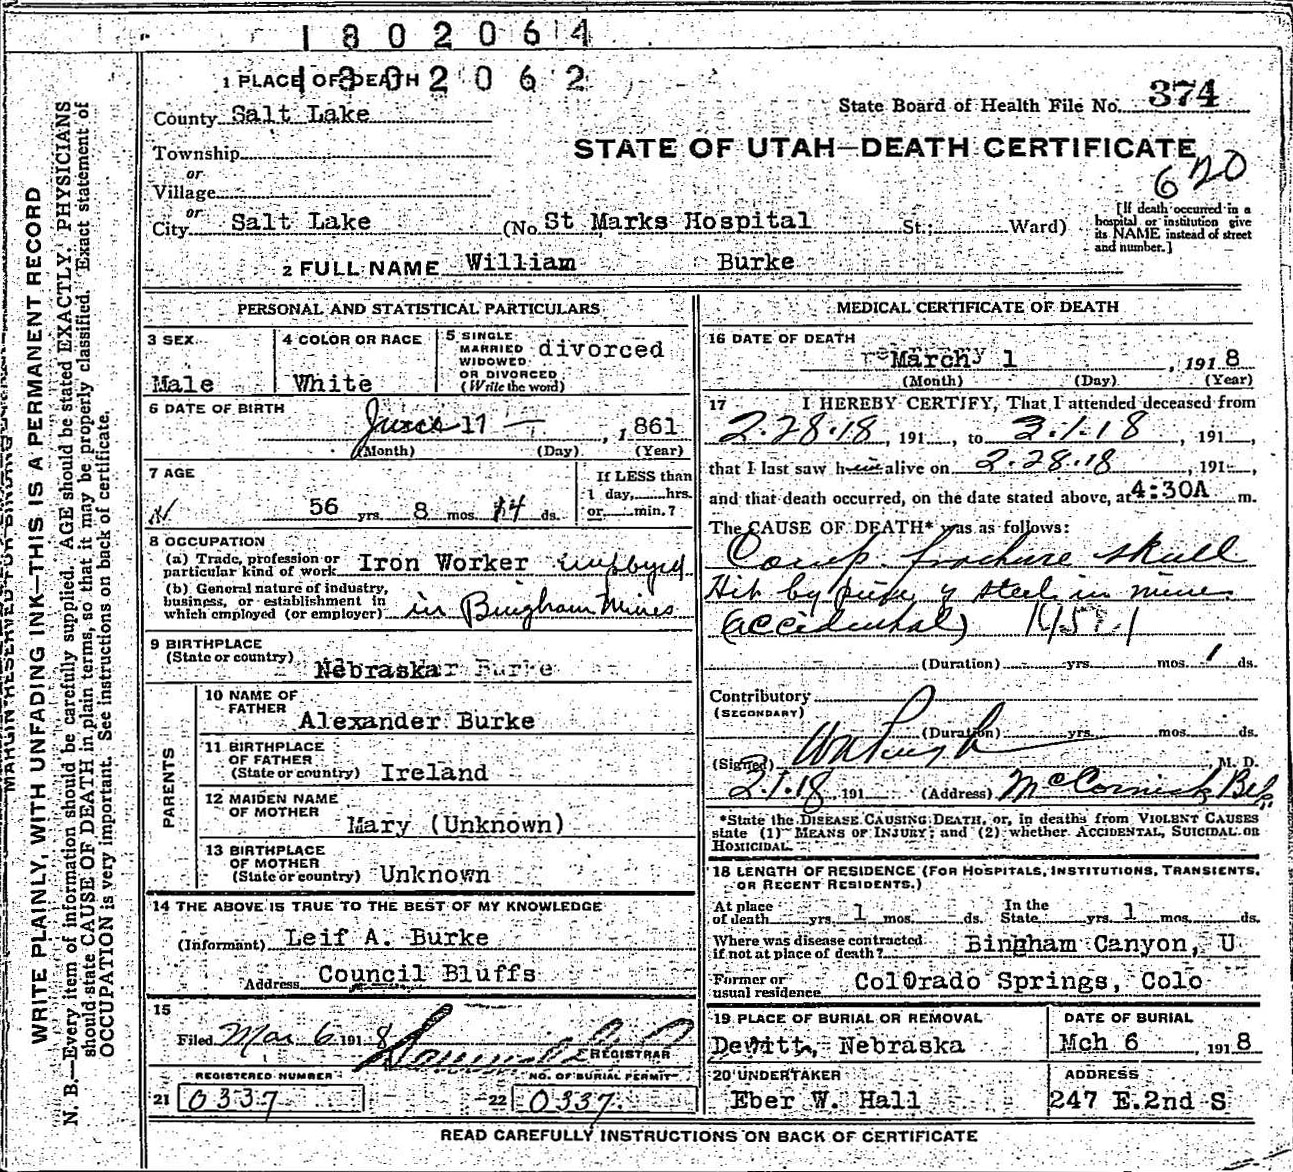 1802064
1302062
1 PLACE OF DEATH
State Board of Health File No. 374
County Salt Lake
STATE OF UTAH—DEATH CERTIFICATE
Township
or
620
Village
or
City Salt Lake (No. St Marks Hospital St.; Ward)
[If death occurred in a
hospital or institution give
its NAME instead of street
and number.]
2 FULL NAME William Burke
PERSONAL AND STATISTICAL PARTICULARS
3 SEX
Male
4 COLOR OR RACE
White
5 SINGLE
MARRIED
WIDOWED
OR DIVORCED
(Write the word)
divorced
6 DATE OF BIRTH
June 17 , 1861
(Month) (Day) (Year)
7 AGE
56 yrs. 8 mos. 14 ds.
If LESS than
1 day, hrs.
or min.?
8 OCCUPATION
(a) Trade, profession or
particular kind of work Iron Worker employed
(b) General nature of industry,
business, or establishment in
which employed (or employer) in Bingham Mines
9 BIRTHPLACE
(State or country)
Nebraska Burke
PARENTS
10 NAME OF
FATHER
Alexander Burke
11 BIRTHPLACE
OF FATHER
(State or country) Ireland
12 MAIDEN NAME
OF MOTHER
Mary (Unknown)
13 BIRTHPLACE
OF MOTHER
(State or country) Unknown
14 THE ABOVE IS TRUE TO THE BEST OF MY KNOWLEDGE
(Informant) Leif A. Burke
Address Council Bluffs
15
Filed Mar 6 1918
REGISTRAR
REGISTERED NUMBER
21 0337
NO. OF BURIAL PERMIT
22 0337
MEDICAL CERTIFICATE OF DEATH
16 DATE OF DEATH
March 1 , 1918
(Month) (Day) (Year)
17 I HEREBY CERTIFY, That I attended deceased from
2.28.18, 191 , to 3.1.18, 191 ,
that I last saw him alive on 2.28.18, 191 ,
and that death occurred, on the date stated above, at 4:30A m.
The CAUSE OF DEATH* was as follows:
Comp. fracture skull
Hit by piece of steel in mines
(accidental)
(Duration) yrs. mos. 1 ds.
Contributory
(SECONDARY)
(Duration) yrs. mos. ds.
(Signed) , M. D.
2.1.18 191 (Address) McCornick
*State the DISEASE CAUSING DEATH, or, in deaths from VIOLENT CAUSES
state (1) MEANS OF INJURY; and (2) whether ACCIDENTAL, SUICIDAL OR
HOMICIDAL.
18 LENGTH OF RESIDENCE (FOR HOSPITALS, INSTITUTIONS, TRANSIENTS,
OR RECENT RESIDENTS.)
At place
of death yrs. 1 mos. ds.
In the
State yrs. 1 mos. ds.
Where was disease contracted
if not at place of death? Bingham Canyon, U
Former or
usual residence Colorado Springs, Colo
19 PLACE OF BURIAL OR REMOVAL
Dewitt, Nebraska
DATE OF BURIAL
Mch 6 , 1918
20 UNDERTAKER
Eber W. Hall
ADDRESS
247 E.2nd S
READ CAREFULLY INSTRUCTIONS ON BACK OF CERTIFICATE
MARGIN RESERVED FOR BINDING
WRITE PLAINLY, WITH UNFADING INK—THIS IS A PERMANENT RECORD
N. B.—Every item of information should be carefully supplied. AGE should be stated EXACTLY. PHYSICIANS
should state CAUSE OF DEATH in plain terms, so that it may be properly classified. Exact statement of
OCCUPATION is very important. See instructions on back of certificate.